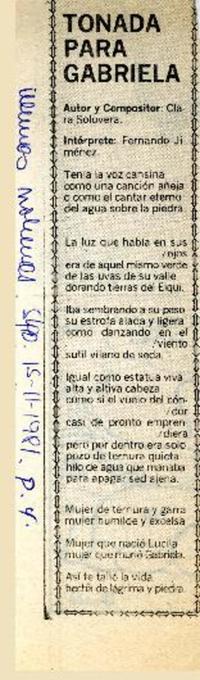 TONADA
PARA
GABRIELA
Autor y Compositor: Cla-
ra Solovera.
Intérprete: Fernando Ji-
ménez.
Tenía la voz cansina
como una canción añeja
o como el cantar eterno
del agua sobre la piedra.
La luz que había en sus
/ojos
era de aquel mismo verde
de las uvas de su valle
dorando tierras del Elqui.
Iba sembrando a su paso
su estrofa alada y ligera
como danzando en el
/viento
sutil vilano de seda.
Igual como estatua viva
alta y altiva cabeza
como si el vuelo del cón-
/dor
casi de pronto empren-
/diera
pero por dentro era solo
pozo de ternura quieta
hilo de agua que manaba
para apagar sed ajena.
Mujer de ternura y garra
mujer humilde y excelsa
Mujer que nació Lucila
mujer que murió Gabriela.
Así te talló la vida
hecha de lágrima y piedra.
Stgo. 15-11-1981. p. 4.